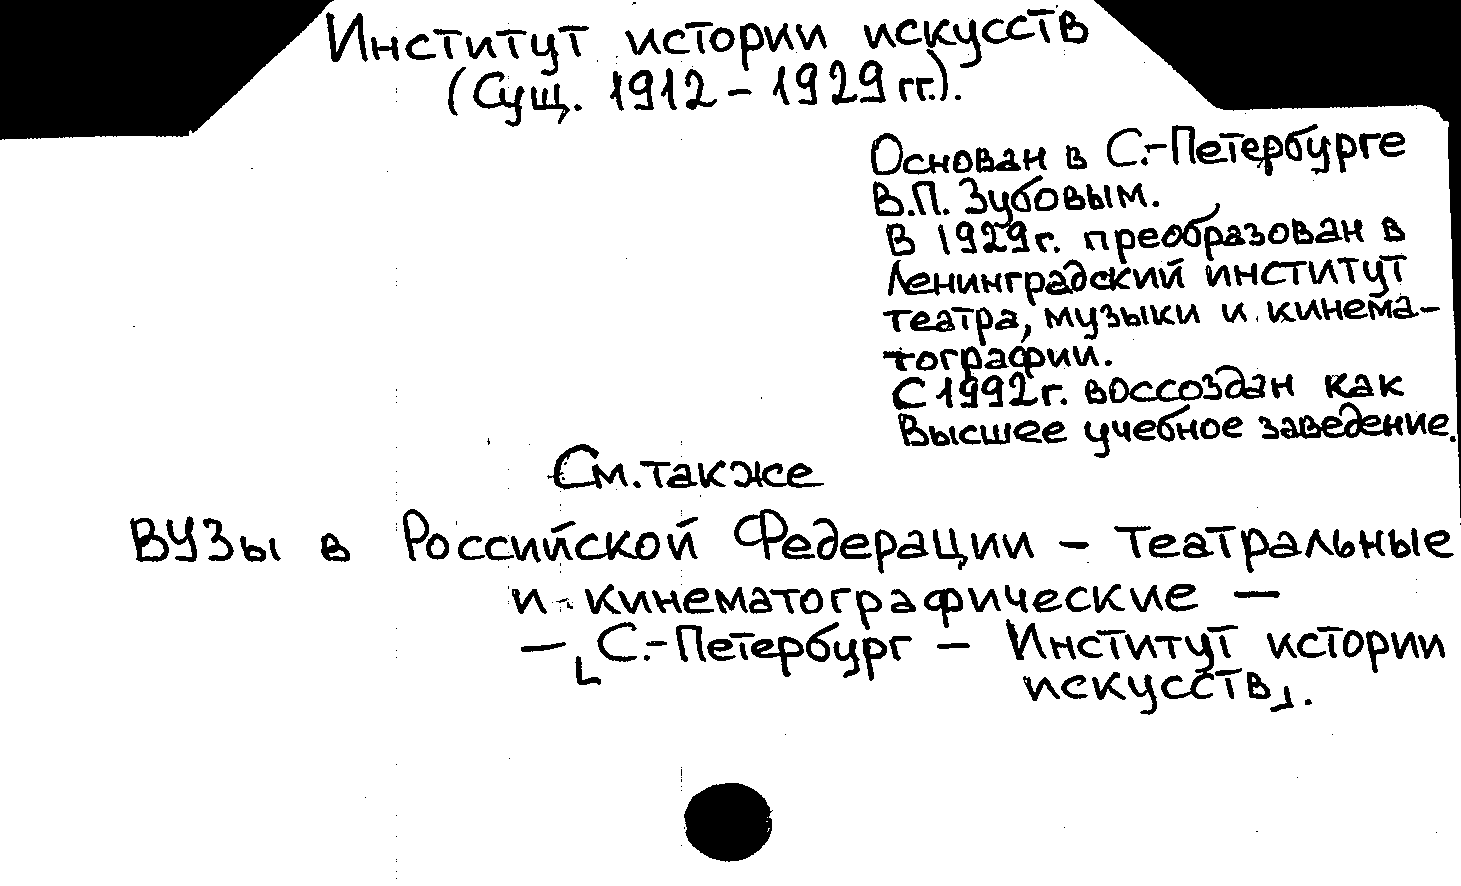 Институт истории искусств
(Сущ. 1912 – 1929 гг.).
Основан в С.-Петербурге
В.П. Зубовым.
В 1929г. преобразован в
Ленинградский институт
театра, музыки и кинема-
тографии.
С 1992г. воссоздан как
Высшее учебное заведение.
См. также
ВУЗы в Российской Федерации – театральные
и кинематографические –
– ⌊С.-Петербург – Институт истории
искусств⌋.